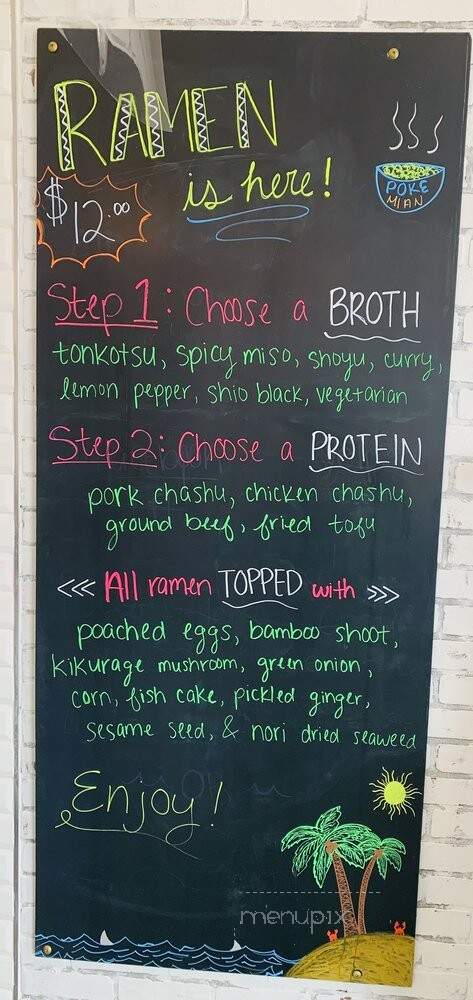 RAMEN
is here!
$12.00
POKE
MIAN
Step 1: Choose a BROTH
tonkotsu, spicy miso, shoyu, curry,
lemon pepper, shio black, vegetarian
Step 2: Choose a PROTEIN
pork chashu, chicken chashu,
ground beef, fried tofu
<<< All ramen TOPPED with >>>
poached eggs, bamboo shoot,
kikurage mushroom, green onion,
corn, fish cake, pickled ginger,
sesame seed, & nori dried seaweed
Enjoy!
menupix